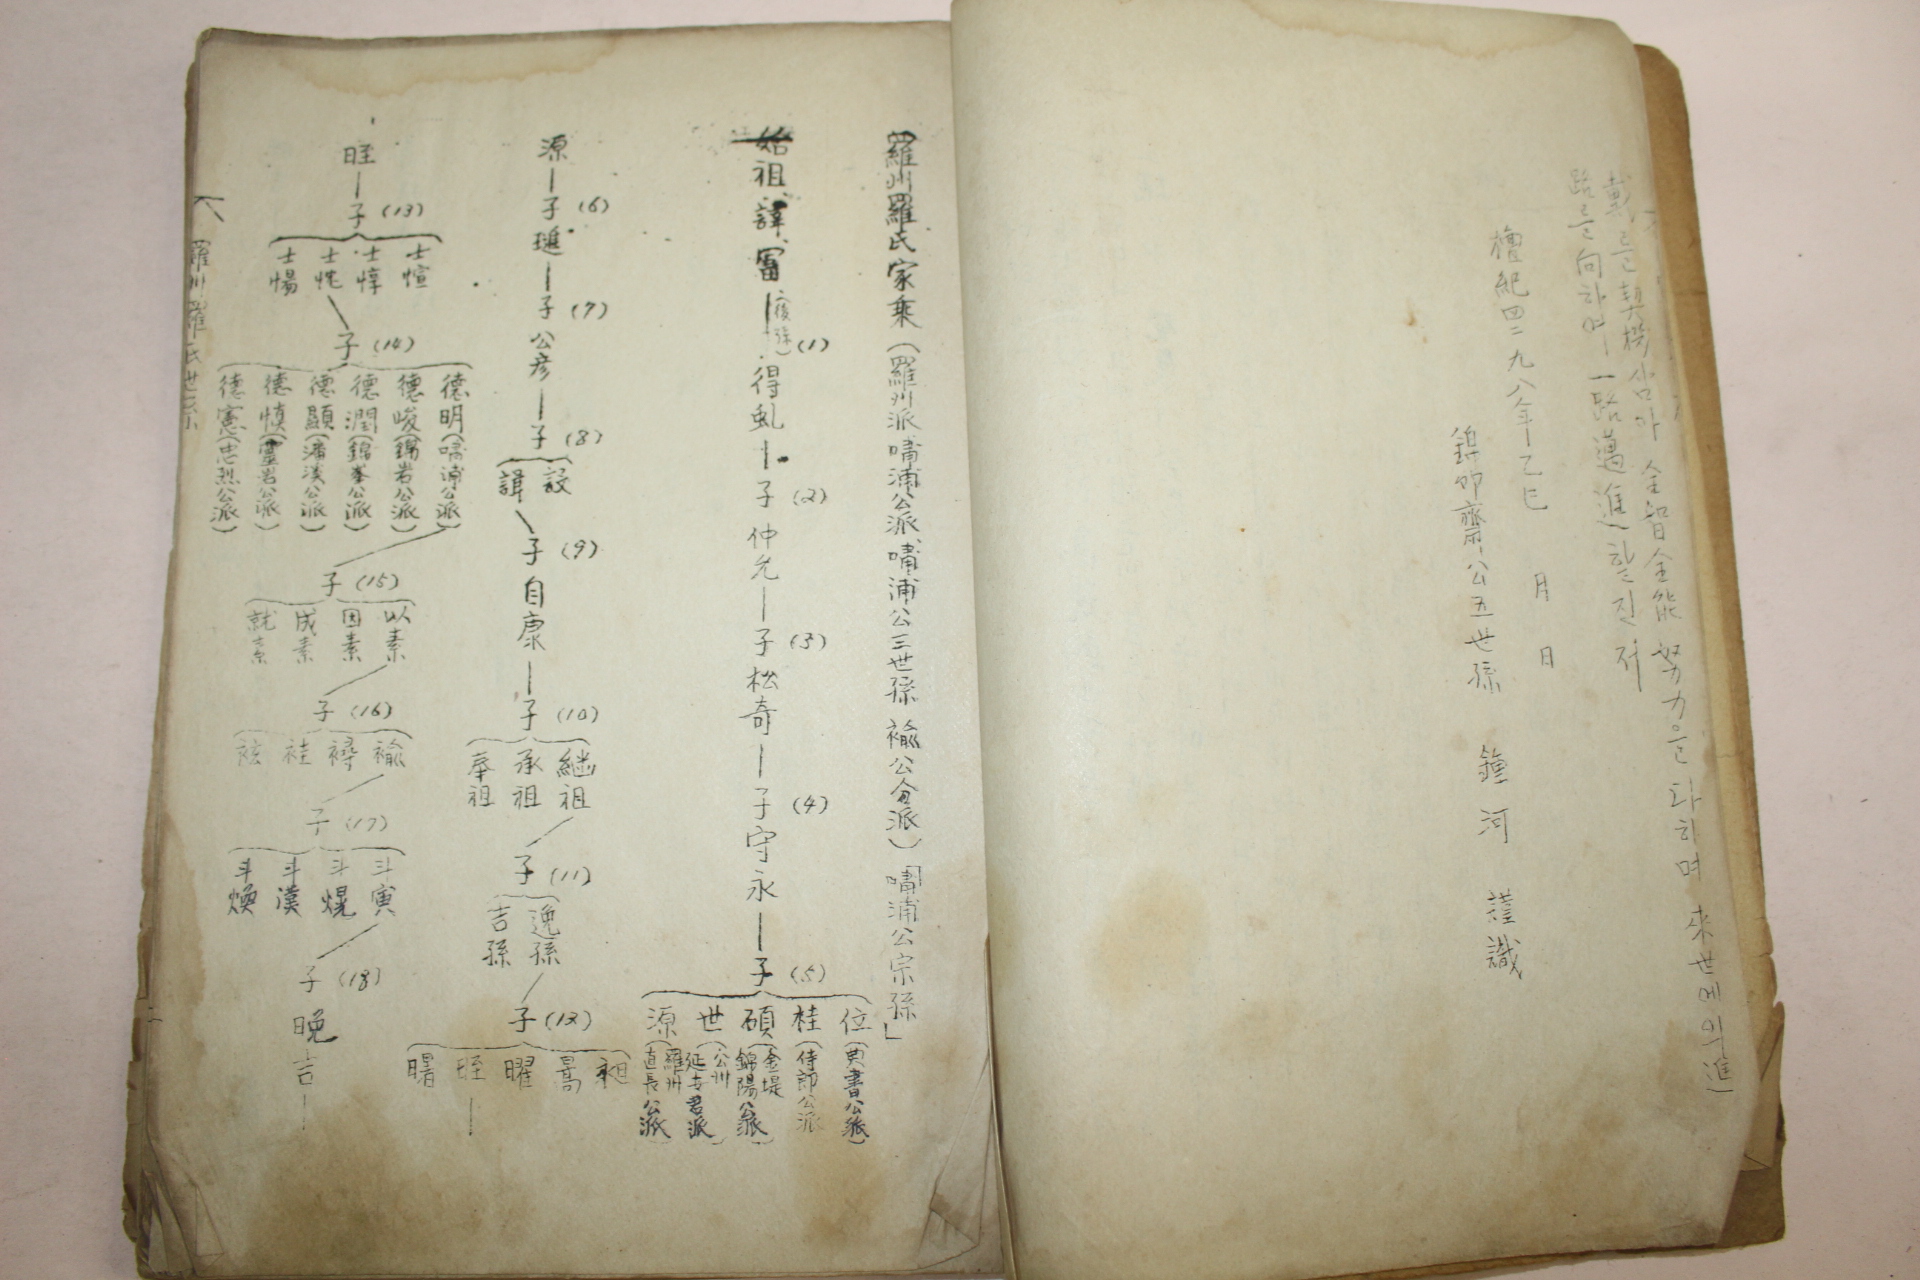 戴를 契機삼아 全智全能 努力을 다하며 來世에의 進
路를 向하여 一路邁進할진저
檀紀四二九八年乙巳 月 日
錦 齋公五世孫 鍾河 謹識
羅州羅氏家乘(羅州派 嘯浦公派 嘯浦公三世孫 褕公分派)「嘯浦公宗孫」
始祖 諱 富(後孫)(1)得虬—子(2)仲允—子(3)松奇—子(4)守永—子(5)
位(典書公派)
桂(侍郎公派)
碩(金堤錦陽公派)
世(公州延 君派)
源(羅州直長公派)
源—子(6)璡—子(7)公彦—子(8)
設 諱
子(9)自康—子(10)
繼祖 承祖 奉祖
子(11)
逸孫 吉孫
子(12)
昶 暠 曜 晊 㬙
晊—子(13)
士愃 士惇 士恍 士愓
子(14)
德明(嘯浦公派)
德峻(錦岩公派)
德潤(錦峯公派)
德顯(潘溪公派)
德愼(靈岩公派)
德憲(忠烈公派)
子(15)
以素 因素 成素 就素
子(16)
褕 襑 袿 袨
子(17)
斗寅 斗熀 斗漢 斗煥
子(18)晩吉—
羅州羅氏世系